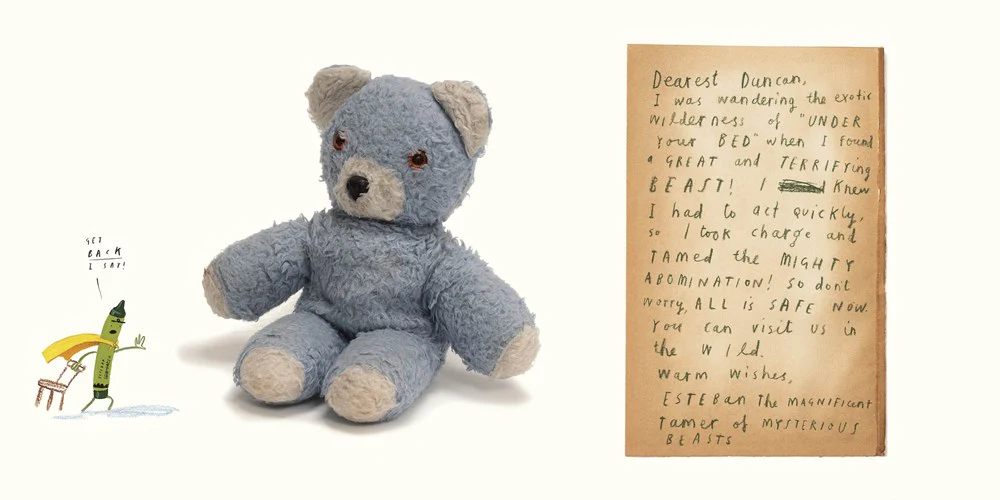 GET
BACK
I SAY!
Dearest Duncan,
I was wandering the exotic
wilderness of "UNDER
Your BED" when I found
a GREAT and TERRIFying
BEAST! I Knew
I had to act quickly,
so I took charge and
TAMED the MIGHTY
ABOMINATION! So don't
worry, ALL is SAFE NOW.
You can visit us in
the wild.
Warm wishes,
ESTEBan The MAGNIFicent
Tamer of MYSTERIOUS
BEASTS